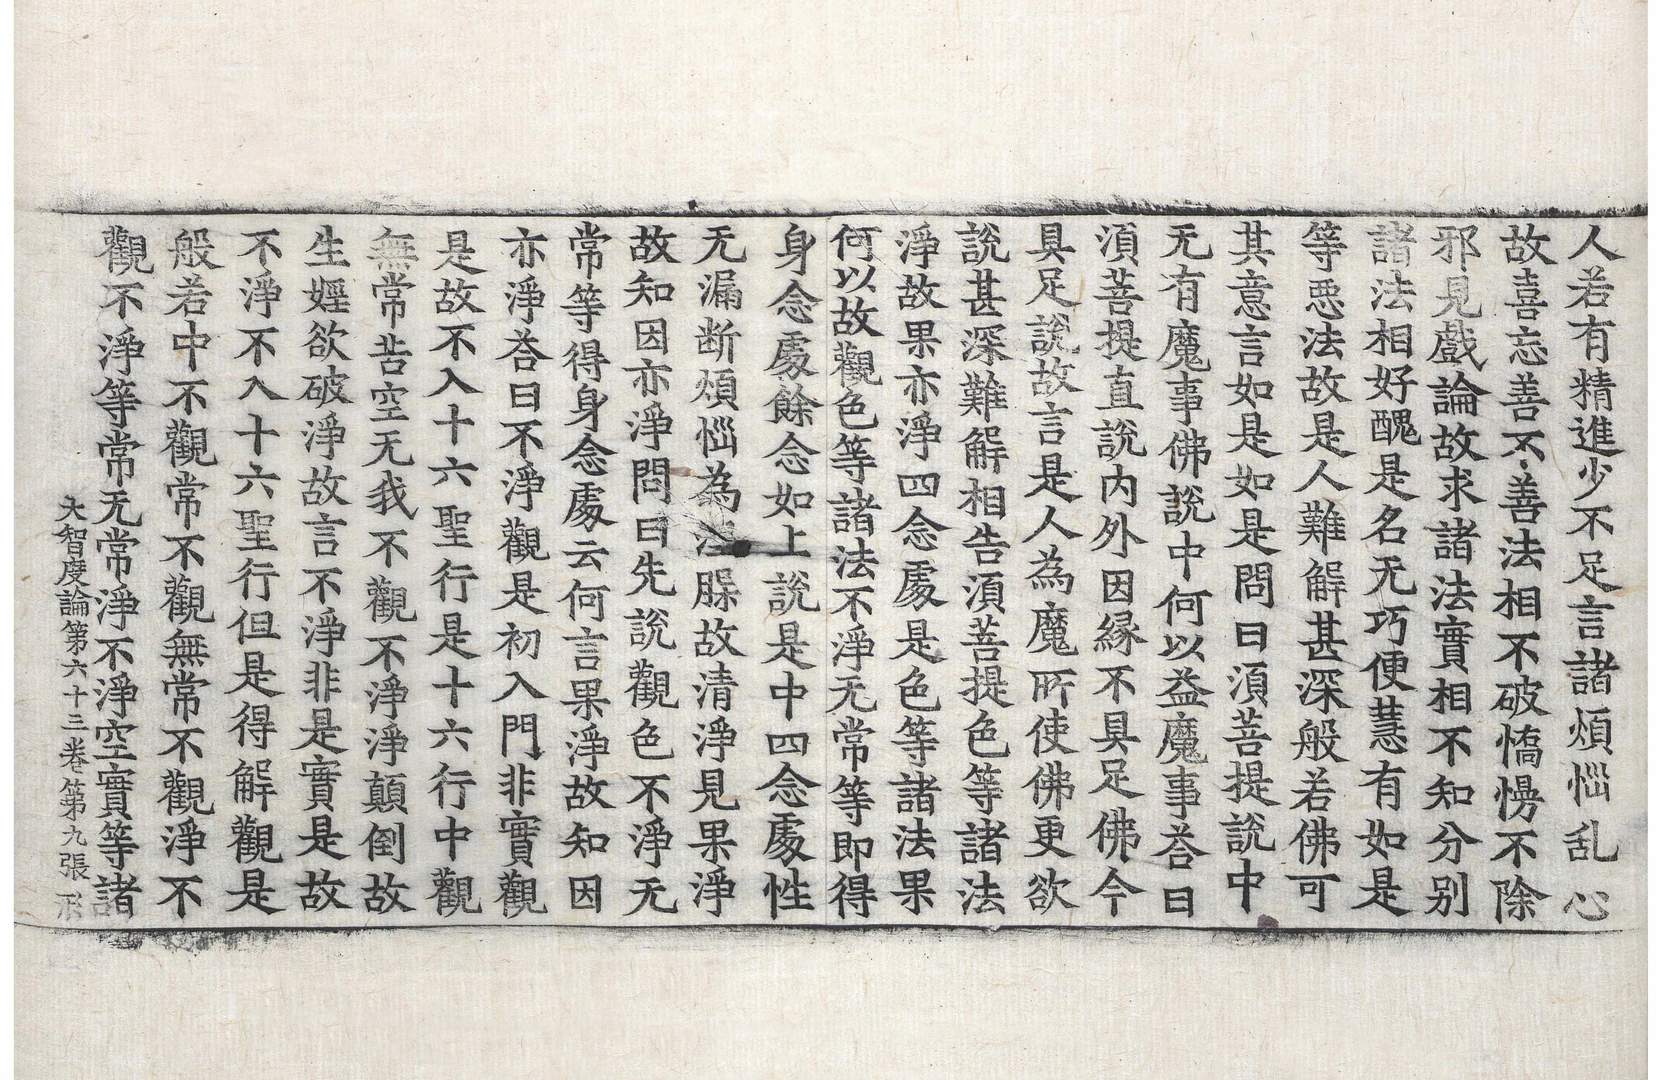 人若有精進少不足言諸煩惱乱心
故喜忘善不善法相不破憍慢不除
邪見戲論故求諸法實相不知分別
諸法相好醜是名无巧便慧有如是
等惡法故是人難解甚深般若佛可
其意言如是如是問曰湏菩提說中
无有魔事佛說中何以益魔事荅曰
湏菩提直說內外因縁不具足佛今
具足說故言是人為魔所使佛更欲
說甚深難解相告湏菩提色等諸法
淨故果亦淨四念處是色等諸法果
何以故觀色等諸法不淨无常等即得
身念處餘念如上說是中四念處性
无漏断煩惱為故清淨見果淨
故知因亦淨問曰先說觀色不淨无
常等得身念處云何言果淨故知因
亦淨荅曰不淨觀是初入門非實觀
是故不入十六聖行是十六行中觀
無常苦空无我不觀不淨淨顛倒故
生婬欲破淨故言不淨非是實是故
不淨不入十六聖行但是得解觀是
般若中不觀常不觀無常不觀淨不
觀不淨等常无常淨不淨空實等諸
大智度論第六十三卷第九張 形